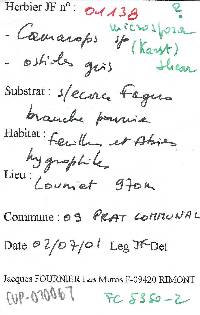 Herbier JF n° : 01139 ?
- Camarops sp microspora
(Karst)
- ostioles gris Shear
Substrat : s/ecorce Fagus
branche pourrie
Habitat : feuillus et Abies
hygrophiles
Lieu :
Loumet 970m
Commune : 09 PRAT COMMUNAL
Date 02/07/01 Leg JF Det
Jacques FOURNIER Las Muros F-09420 RIMONT
FC 5350-2